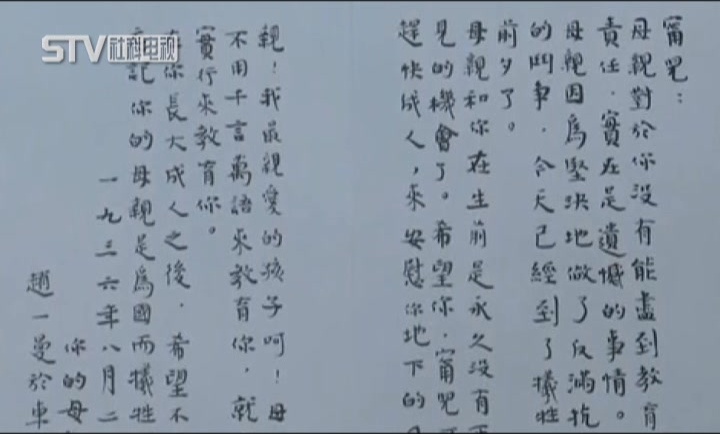 STV社科电视
甯兒：
母親對於你没有能盡到教育
責任，實在是遺憾的事情。
母親因爲堅決地做了反滿抗
的鬥爭，今天已經到了犧牲
前夕了。
母親和你在生前是永久没有再
見的機會了。希望你，甯兒
趕快成人，來安慰你地下的
親！我最親愛的孩子呵！母
不用千言萬語來教育你，就
實行來教育你。
在你長大成人之後，希望不
忘記你的母親是爲國而犧牲
一九三六年八月二
你的母
趙一曼於車